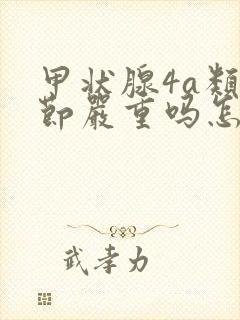 甲状腺4a類
節嚴重吗怎
武孝力